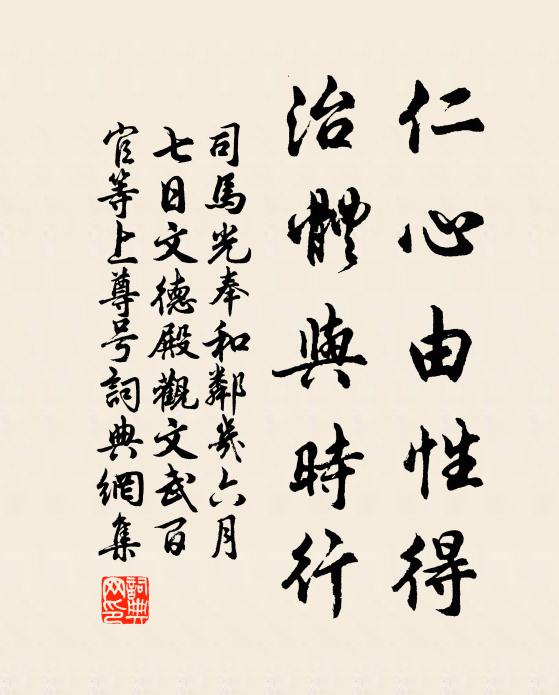 仁心由性得
治體與時行
司馬光奉和鄰幾六月
七日文德殿觀文武百
官等上尊号詞典網集
詞典網印